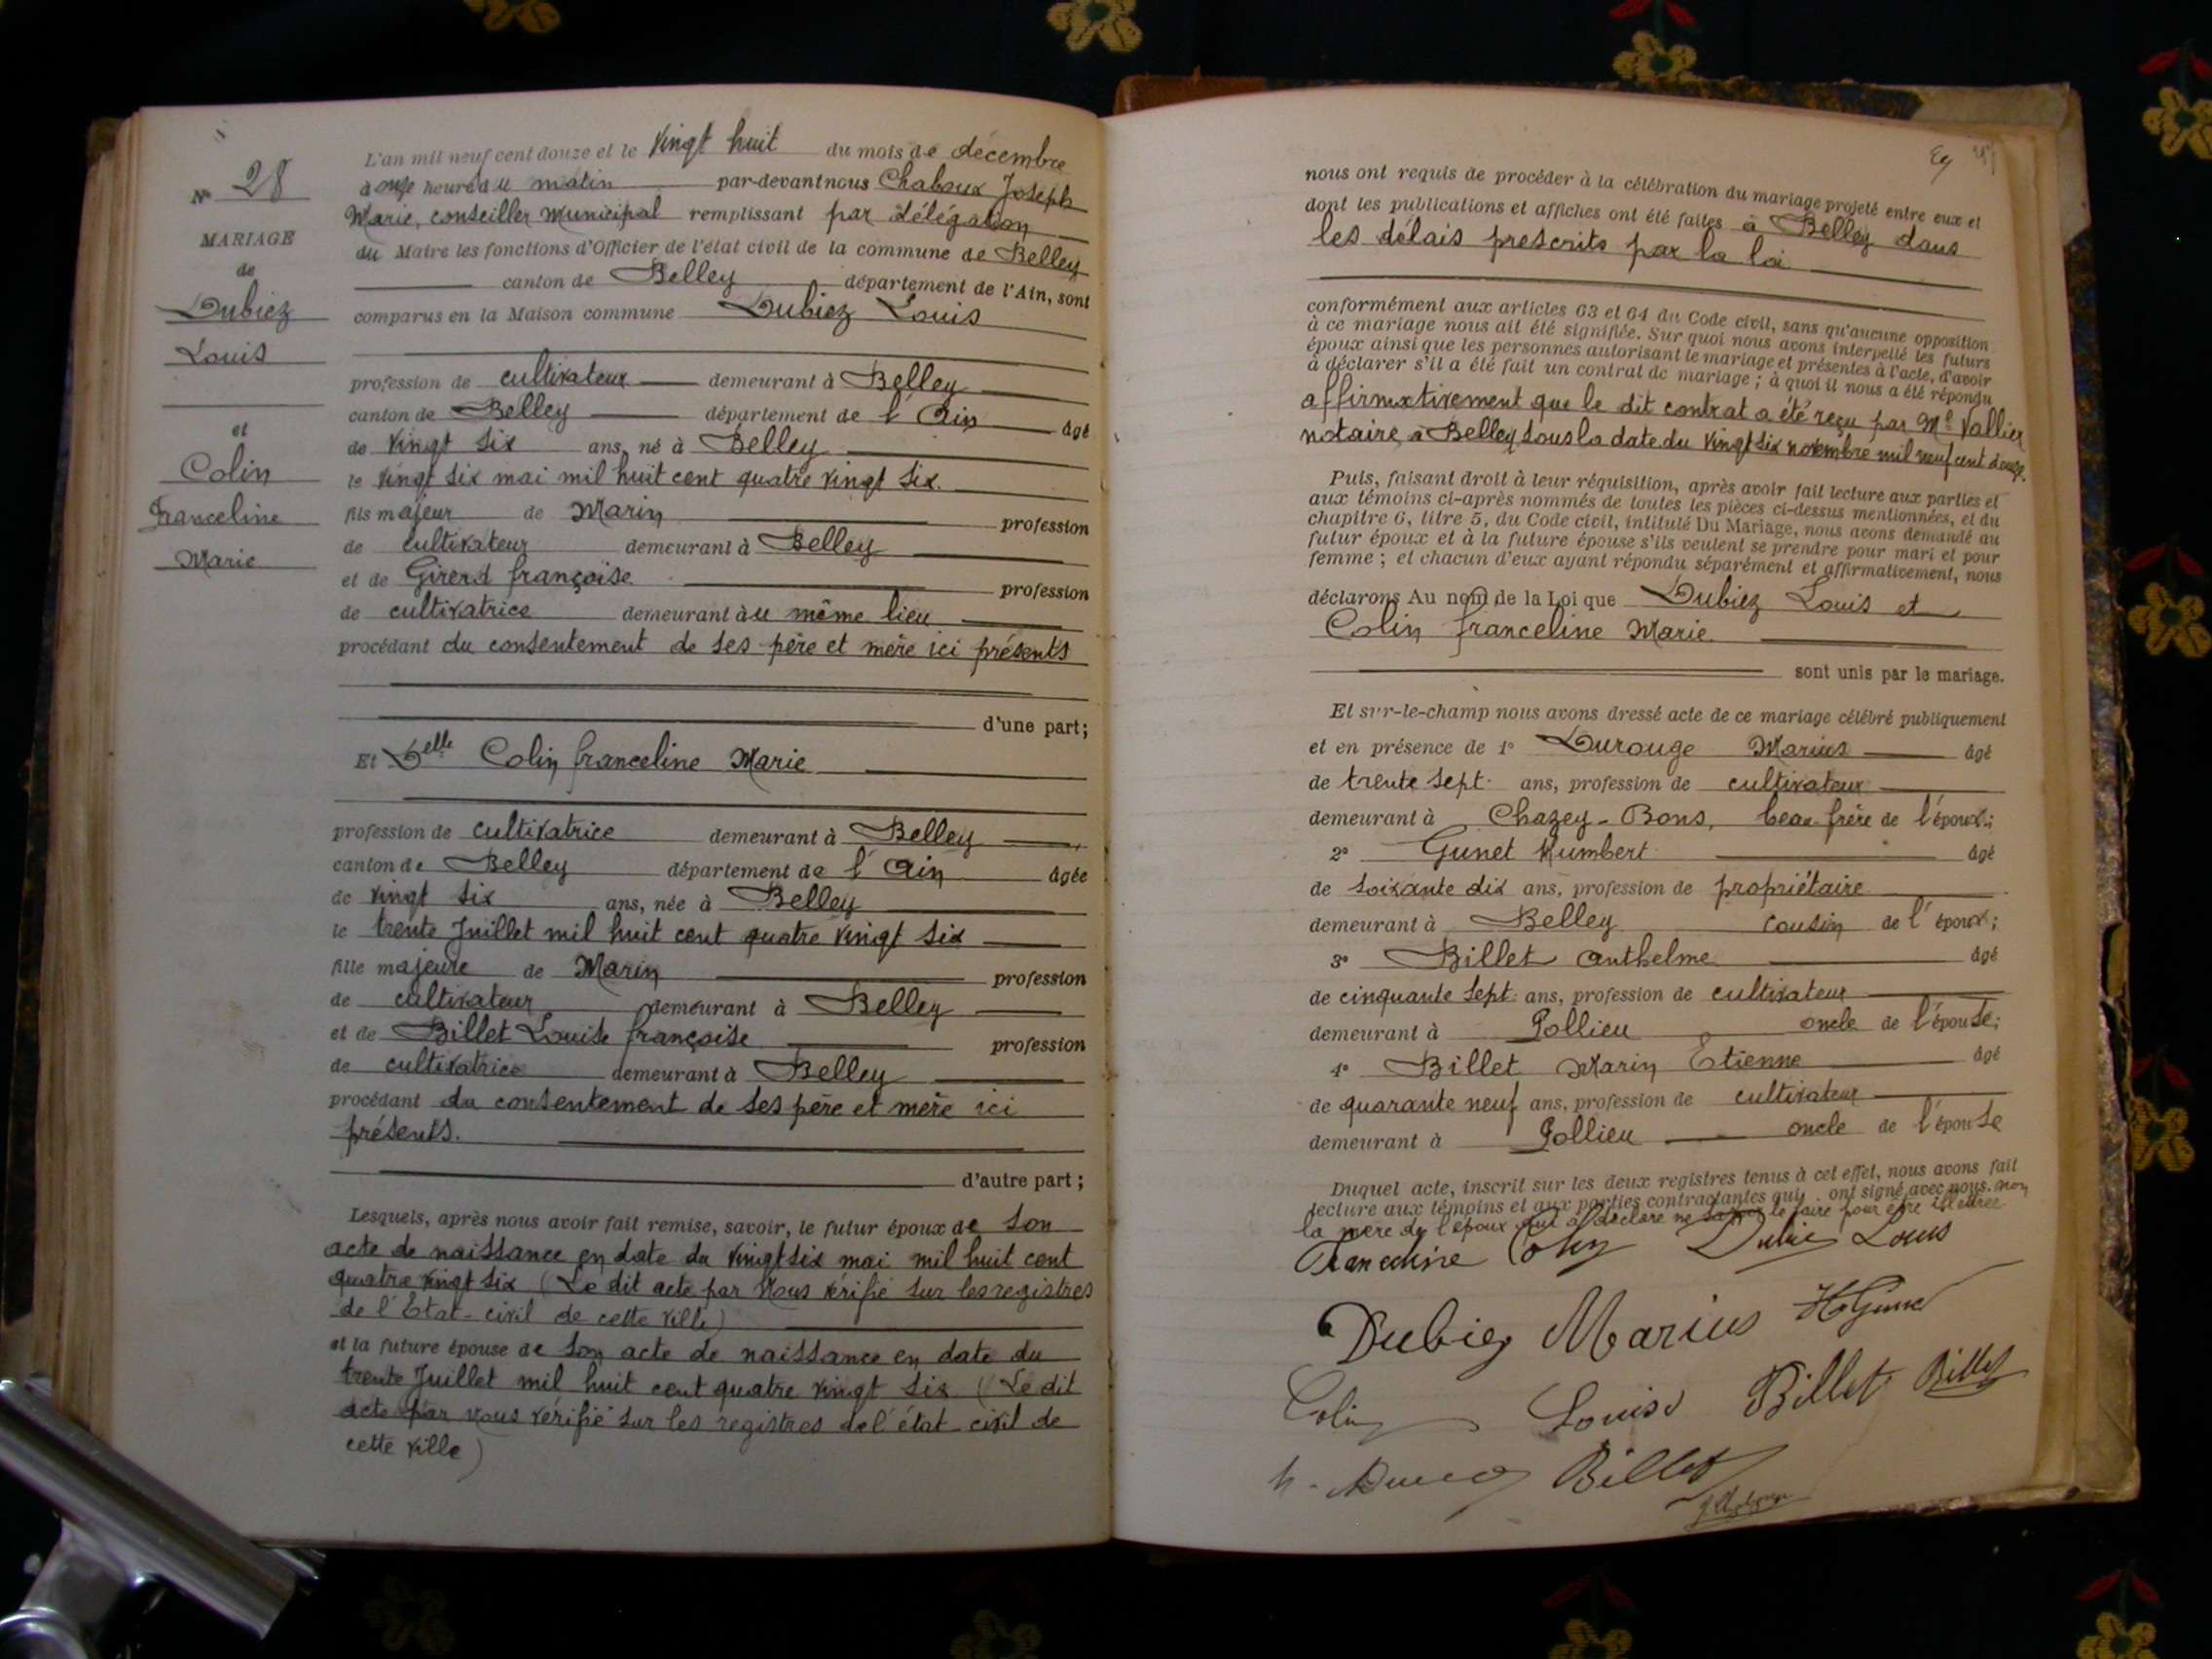 N° 28
MARIAGE
de
Dubiez
Louis
et
Colin
Franceline
Marie
L'an mil neuf cent douze et le vingt huit du mois de décembre
à onze heures du matin par-devant nous Chaboux Joseph
Marie, conseiller municipal remplissant par délégation
du Maire les fonctions d'Officier de l'état civil de la commune de Belley
canton de Belley département de l'Ain, sont
comparus en la Maison commune Dubiez Louis
profession de cultivateur demeurant à Belley
canton de Belley département de l'Ain âgé
de vingt six ans, né à Belley
le vingt six mai mil huit cent quatre vingt six.
fils majeur de Marin profession
de cultivateur demeurant à Belley
et de Girerd françoise profession
de cultivatrice demeurant au même lieu
procédant du consentement de ses père et mère ici présents
d'une part;
Et Delle Colin franceline Marie
profession de cultivatrice demeurant à Belley
canton de Belley département de l'Ain âgée
de vingt six ans, née à Belley
le trente Juillet mil huit cent quatre vingt six
fille majeure de Marin profession
de cultivateur demeurant à Belley
et de Billet Louise françoise profession
de cultivatrice demeurant à Belley
procédant du consentement de ses père et mère ici
présents.
d'autre part;
Lesquels, après nous avoir fait remise, savoir, le futur époux de son
acte de naissance en date du vingt six mai mil huit cent
quatre vingt six (Le dit acte par Nous vérifié sur les registres
de l'Etat-civil de cette ville)
et la future épouse de son acte de naissance en date du
trente Juillet mil huit cent quatre vingt six (Le dit
acte par nous vérifié sur les registres de l'état civil de
cette ville)
nous ont requis de procéder à la célébration du mariage projeté entre eux et
dont les publications et affiches ont été faites à Belley dans
les délais prescrits par la loi
conformément aux articles 63 et 64 du Code civil, sans qu'aucune opposition
à ce mariage nous ait été signifiée. Sur quoi nous avons interpellé les futurs
époux ainsi que les personnes autorisant le mariage et présentes à l'acte, d'avoir
à déclarer s'il a été fait un contrat de mariage; à quoi il nous a été répondu
affirmativement que le dit contrat a été reçu par Me Vallier
notaire à Belley sous la date du vingt six novembre mil neuf cent douze.
Puis, faisant droit à leur réquisition, après avoir fait lecture aux parties et
aux témoins ci-après nommés de toutes les pièces ci-dessus mentionnées, et du
chapitre 6, titre 5, du Code civil, intitulé Du Mariage, nous avons demandé au
futur époux et à la future épouse s'ils veulent se prendre pour mari et pour
femme; et chacun d'eux ayant répondu séparément et affirmativement, nous
déclarons Au nom de la Loi que Dubiez Louis et
Colin franceline Marie
sont unis par le mariage.
Et sur-le-champ nous avons dressé acte de ce mariage célébré publiquement
et en présence de 1° Durouge Marius âgé
de trente sept ans, profession de cultivateur
demeurant à Chazey-Bons, beau-frère de l'époux;
2° Gunet Humbert âgé
de soixante dix ans, profession de propriétaire
demeurant à Belley cousin de l'époux;
3° Billet anthelme âgé
de cinquante sept ans, profession de cultivateur
demeurant à Pollieu oncle de l'épouse;
4° Billet Marin Etienne âgé
de quarante neuf ans, profession de cultivateur
demeurant à Pollieu oncle de l'épouse
Duquel acte, inscrit sur les deux registres tenus à cet effet, nous avons fait
lecture aux témoins et aux parties contractantes qui ont signé avec nous. non
la mère de l'époux qui a déclaré ne le faire pour être illettrée
Franceline Colin Dubiez Louis
Dubiez Marius
Colin Louise Billet Billet
Billet